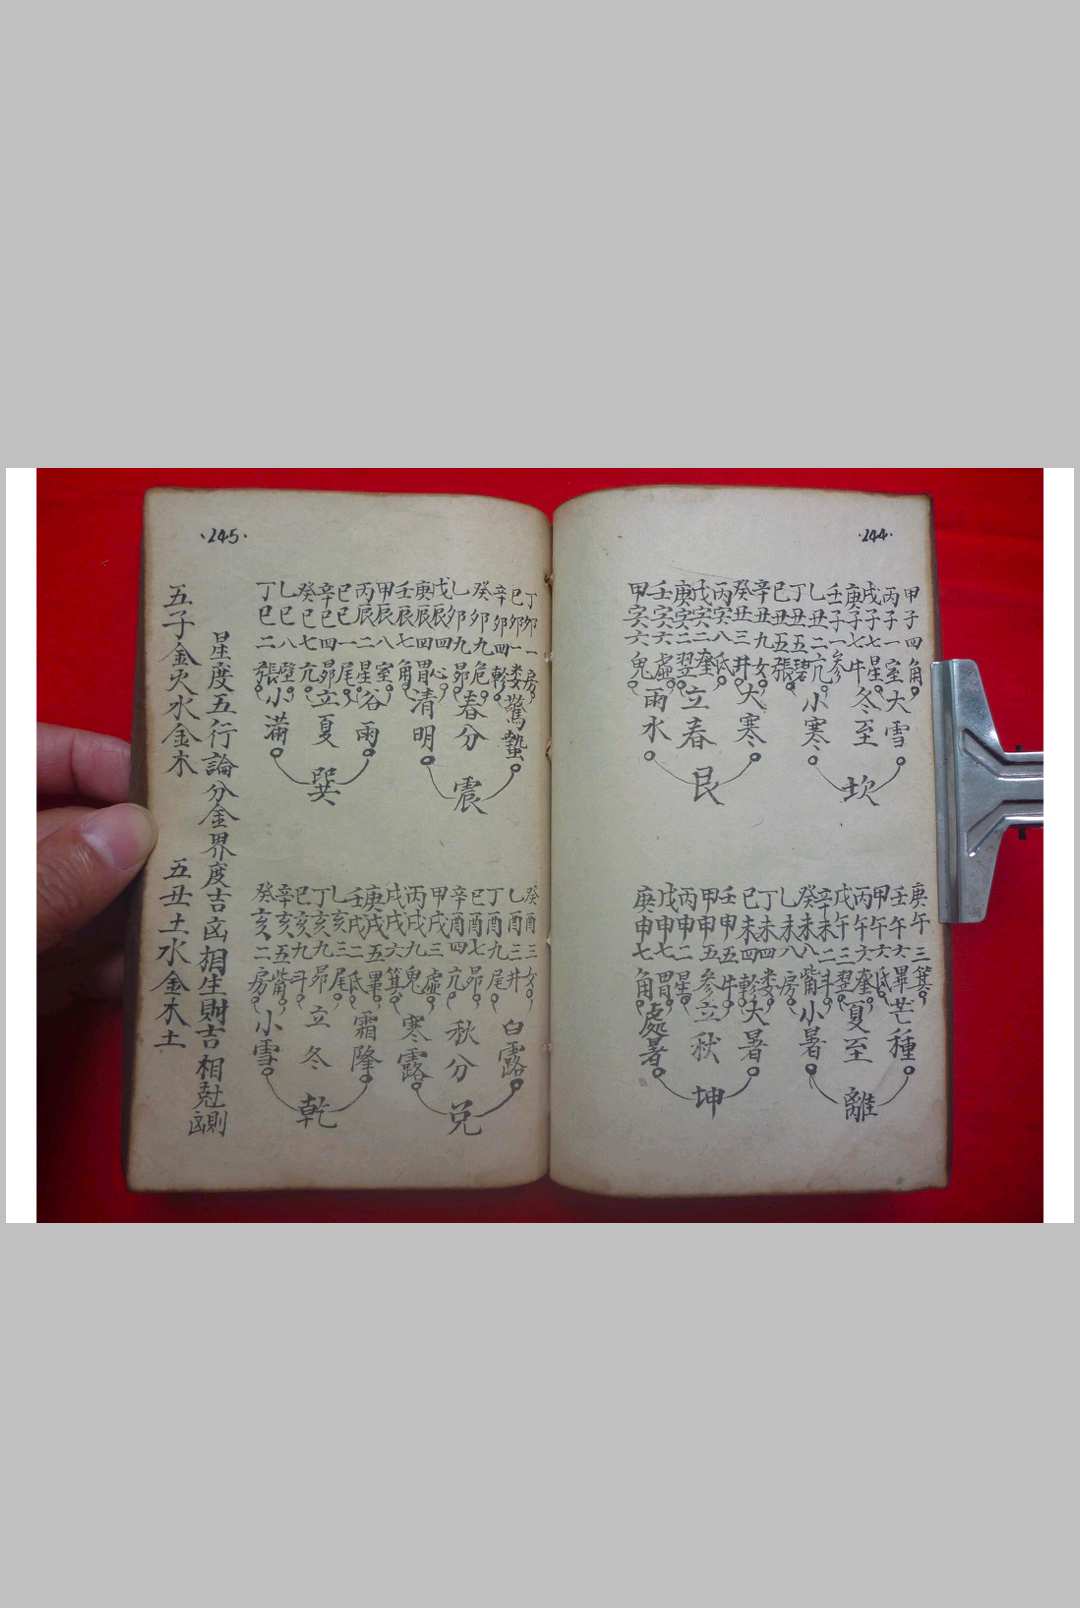 ·244·
甲子四角
丙子一室
戊子七星
庚子七牛
壬子一參
乙丑二亢
丁丑五碧
己丑五張
辛丑九女
癸丑三井
丙寅八氐
戊寅二奎
庚寅二翌
壬寅六虛
甲寅六鬼
大雪
冬至
小寒
大寒
立春
雨水
坎
艮
庚午三箕
壬午六畢
甲午六氐
丙午六奎
戊午三翌
辛未二斗
癸未八觜
乙未八房
丁未四娄
己未四軫
壬申五牛
甲申五參
丙申二星
戊申七胃
庚申七角
芒種
夏至
小暑
大暑
立秋
處暑
離
坤
·245·
丁卯一房
己卯一娄
辛卯四軫
癸卯九危
乙卯九昴
戊辰四心
庚辰四胃
壬辰七角
甲辰八室
丙辰二星
己巳一尾
辛巳四昴
癸巳七亢
乙巳八壁
丁巳二張
驚蟄
春分
清明
谷雨
立夏
小滿
震
巽
癸酉三女
乙酉三井
丁酉九尾
己酉七昴
辛酉四亢
甲戌三虛
丙戌九鬼
戊戌六箕
庚戌五畢
壬戌二氐
乙亥三尾
丁亥九昴
己亥九斗
辛亥五觜
癸亥二房
白露
秋分
寒露
霜降
立冬
小雪
兌
乾
星度五行論分金界度吉凶相生財吉相尅凶則
五子金火水金木 五丑土水金木土